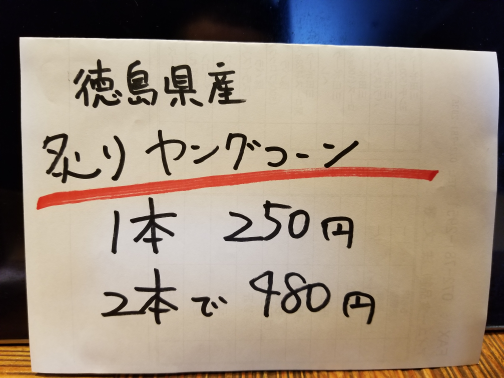 徳島県産
炙りヤングコーン
1本 250円
2本で 480円